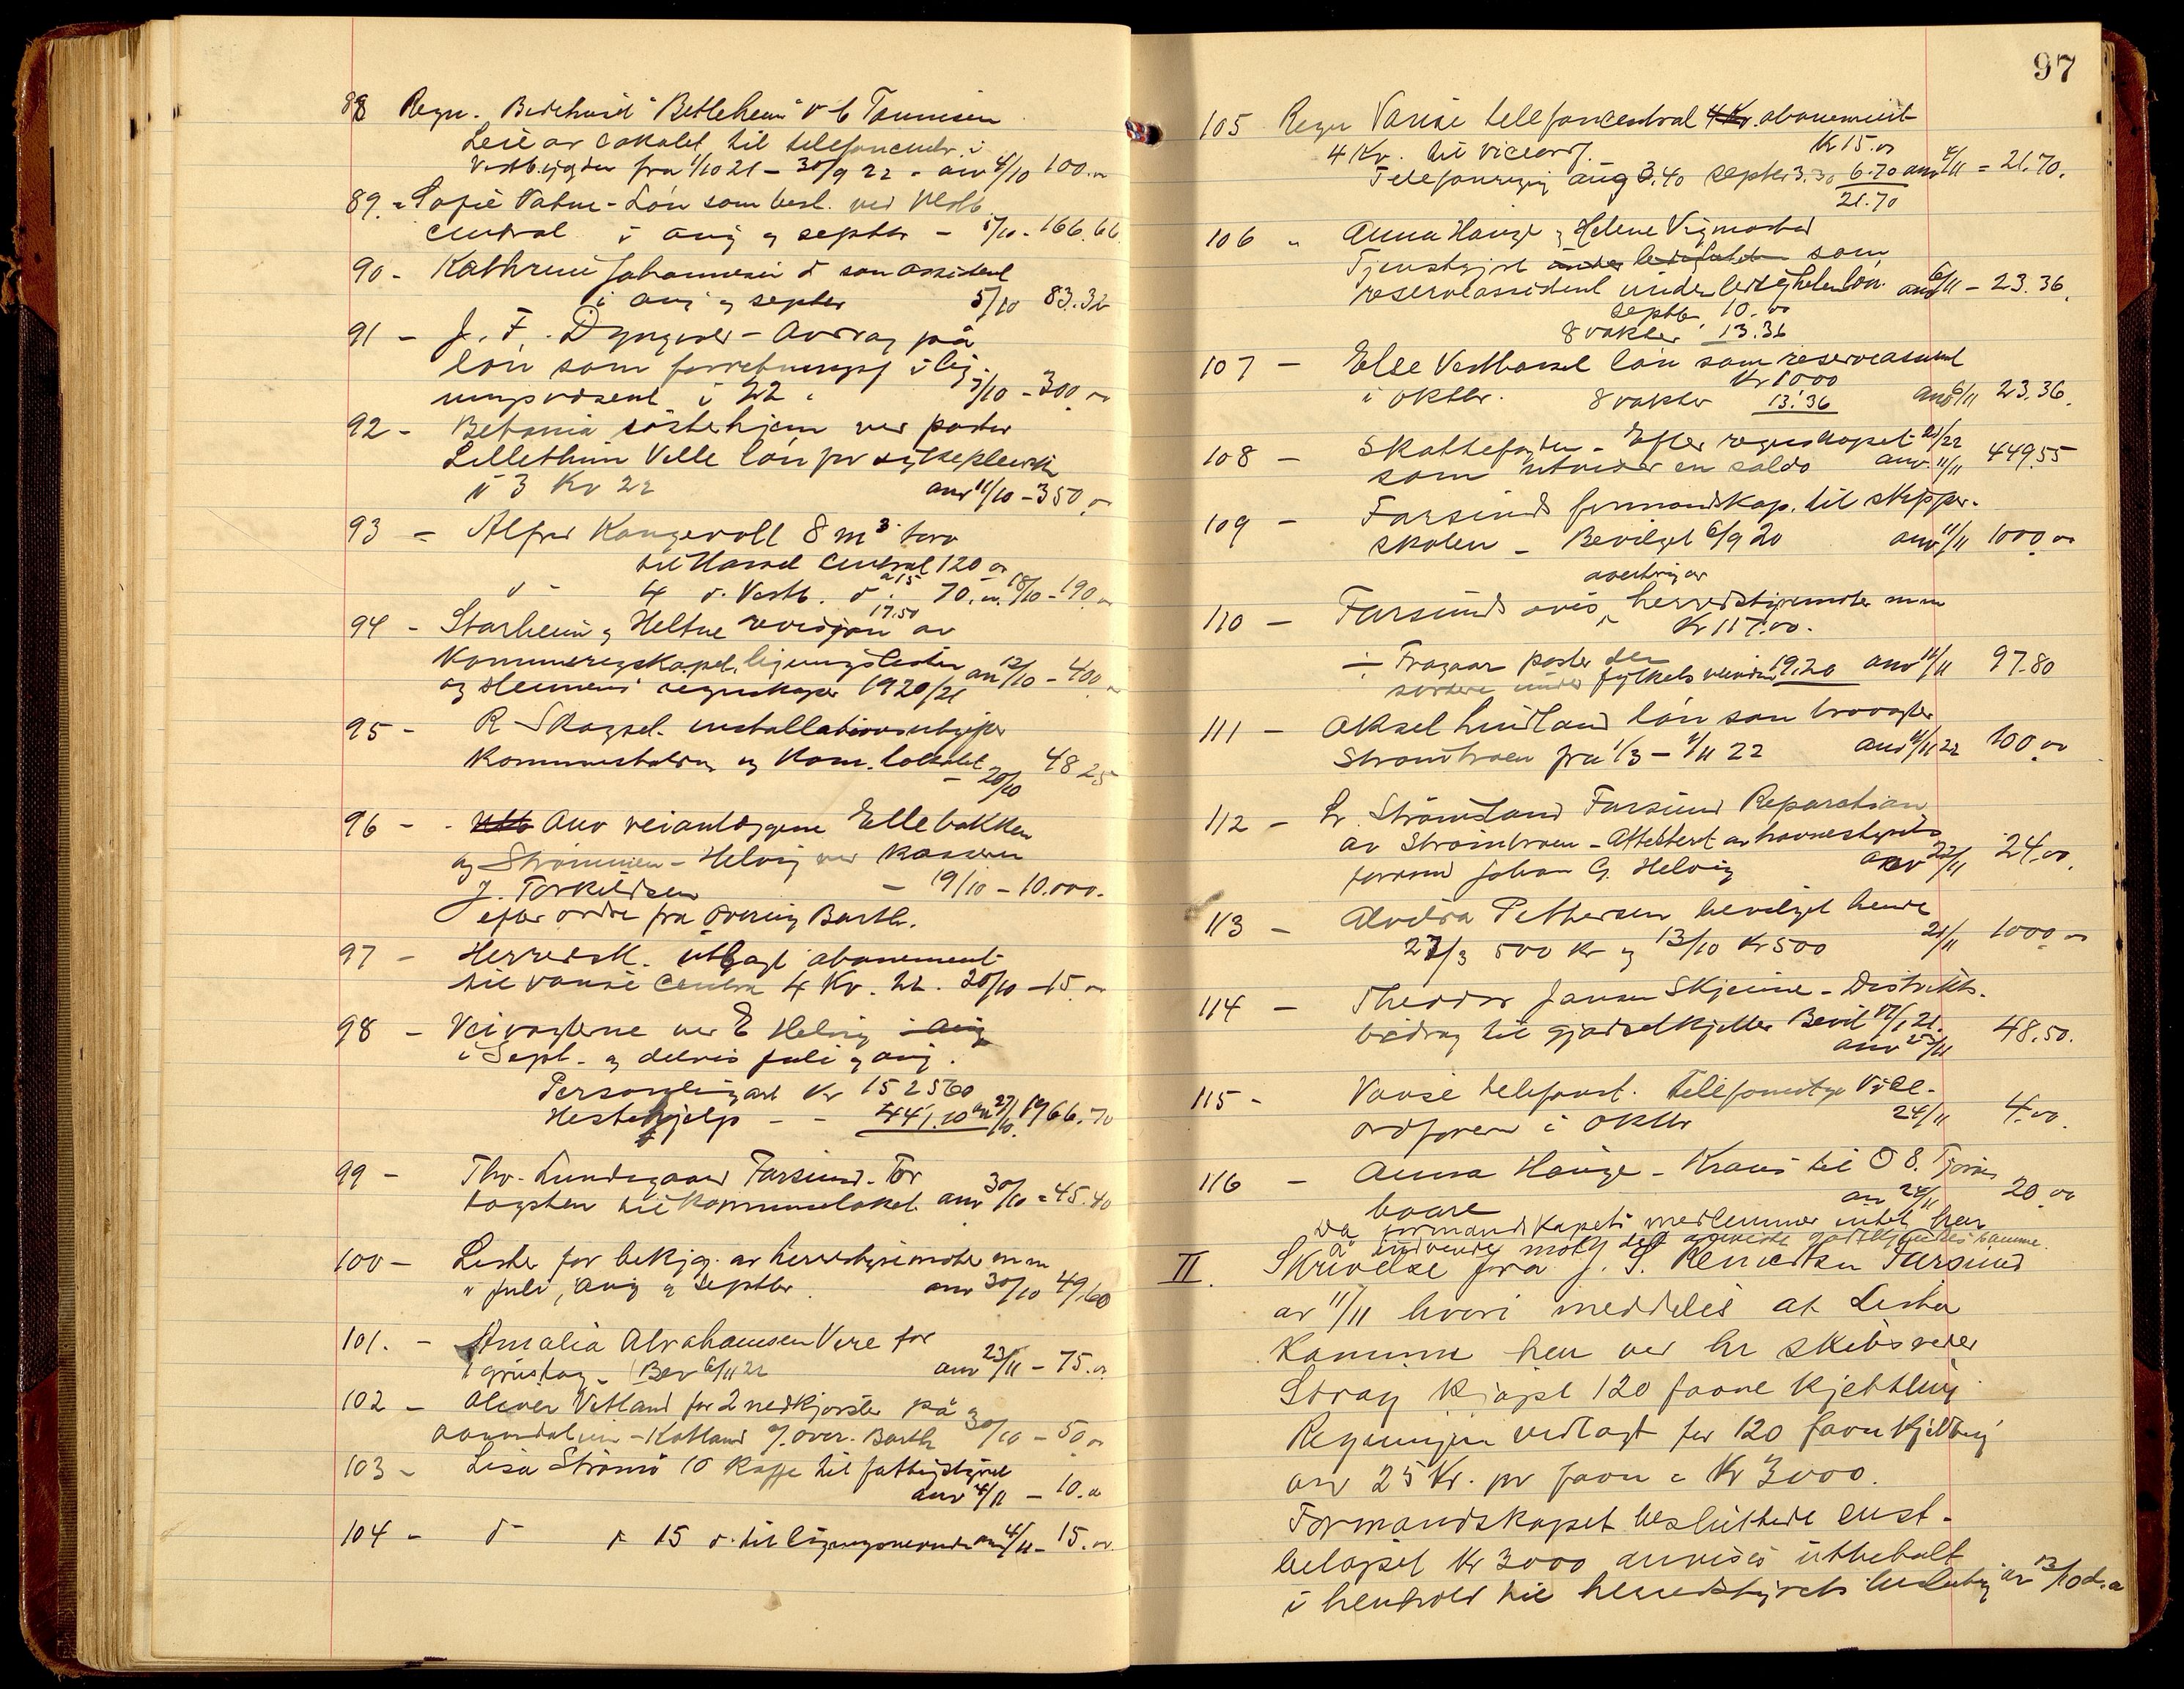 88 Regn. Bedehuset "Betlehem" v C Tønnesen
Leie av lokalet til telefoncentr. i
Vestbygden fra 1/10 21 - 30/9 22 - anv 4/10 100.00
89. - Sofie Vatne - Løn som best. ved Vestb.
central i aug og septbr - 5/10 - 166.66
90 - Kathrine Johannesen d som assistent
i aug og septbr 5/10 83.32
91 - J. F. Dyngvold - Avdrag på
løn som forretningsf i lig-
ningsvæsent i 22 - 7/10 - 300.00
92 - Betania søsterhjem ved pastor
Lillethun Velle løn for sykepleierske
i 3 Kv 22 anv 11/10 - 350.00
93 - Alfred Kongevoll 8 m3 torv
til Hassel Central 120.00
a 15
" - 4 d. Vestb. d. 70.00 18/10 - 190.00
17.50
94 - Starheim og Heltne revision av
Kommuneregnskapet, ligningskassen
og regnskaper 1920/21 anv 12/10 - 400.00
95 - R Skagsel. installationsutgifter
Kommunekassen og Kom. lokalet
- 20/10 48 25
96 - - Anv veianlæggene Ellebakken
og Strømmen - Helvig ved kasserer
J. Torkildsen - 19/10 - 10.000.
efter ordre fra Overing Barth.
97 - Herredsk. utlagt abonement
til vanse Central 4 Kv. 22. 20/10 - 15.00
98 - Veivogterne ved E Helvig i aug
i Sept. og delvis juli og aug.
Personlig arb Kr 1525.60
Hestehjelp - - 441.10 anv 27/10. 1966.70
99 - Thv. Lundegaard Farsund - For
tagsten til Kommunelokal. anv 30/10 - 45.40
100 - Lister for bekjg. av herredstyremøter m m
i juli, aug og septbr. anv 30/10 49.60
101. - Amalia Abrahamsen Vere for
1 grustag - Bev 6/11 22 anv 23/11 - 75.00
102 - Oliver Vetland for 2 nedkjørsler på
- Kotland e/ over. Barth 30/10 - 50.00
103 - Lisa Strømø 10 Kaffe til fattigstyret
anv 4/11 - 10.00
104 - d d 15 d. til ligningsnevnden anv 4/11 - 15.00
97
105 Regn Vanse telefoncentral 4 Kv. abonement
4 Kv. til viceordf. Kr 15.00
Telefonering aug 3.40 septbr 3.30 6.70 anv 4/11 = 21.70.
21.70
106 " Anna Hauge og Helene Vigmostad
Tjenstgjort under ledigheten som
reserveassistent under ledigheten løn. anv 6/11 - 23.36.
septbr 10.00
8 vakter 13.36
107 - Else Vesthassel løn som reserveassistent
i oktbr. Kr 1000
8 vakter 13.36 anv 6/11 23.36.
108 - Skattefogden - Efter regnskapet 21/22
som utviser en saldo anv. 11/11 449.55
109 - Farsunds formandskap. til skipper-
skolen - Bevilget 6/9 20 anv 11/11 1000.00
avertering av
110 - Farsunds avis, herredstyremøter m m
Kr 117.00.
÷ Fragaar poster der
sortere under fylkets veivæsen 19.20 anv 11/11 97.80
111 - Aksel Lindland løn som brovogter
Strømbroen fra 1/3 - 1/11 22 anv 11/11 22 100.00
112 - Hr. Strømsland Farsund Reparation
av Strømbroen - Attestert av havnestyrets
formand Johan G. Helvig anv 22/11 24.00.
113 - Alvdra Pettersen bevilget hende
27/3 500 Kr og 13/10 Kr 500 21/11 1000.00
114 - Theodor Jansen Skjeime - Distrikts-
bidrag til gjødselkjeller Bevil 17/1 21.
anv 23/11 48.50.
115 - Vanse telefonst. Telefonutg Vice-
ordføreren i oktbr 24/11 4.00.
116 - Anna Hauge - Krans til O S. Tjørns
baare anv 24/11 20.00
Da formandskapets medlemmer intet har
å indvende mot det anviste godkjendes samme.
II. Skrivelse fra J. S. Farsund
av 11/11 hvori meddeles at Lista
Kommune har ved hr skibsreder
Stray kjøpt 120 favne kjetting
Regningen vedlagt for 120 favn kjetting
anv 25 Kr. pr favn = Kr 3000.
Formandskapet besluttede enst-
beløpet Kr 3000 anvises utbetalt
i henhold til herredstyrets beslutning av 13/10 d.a